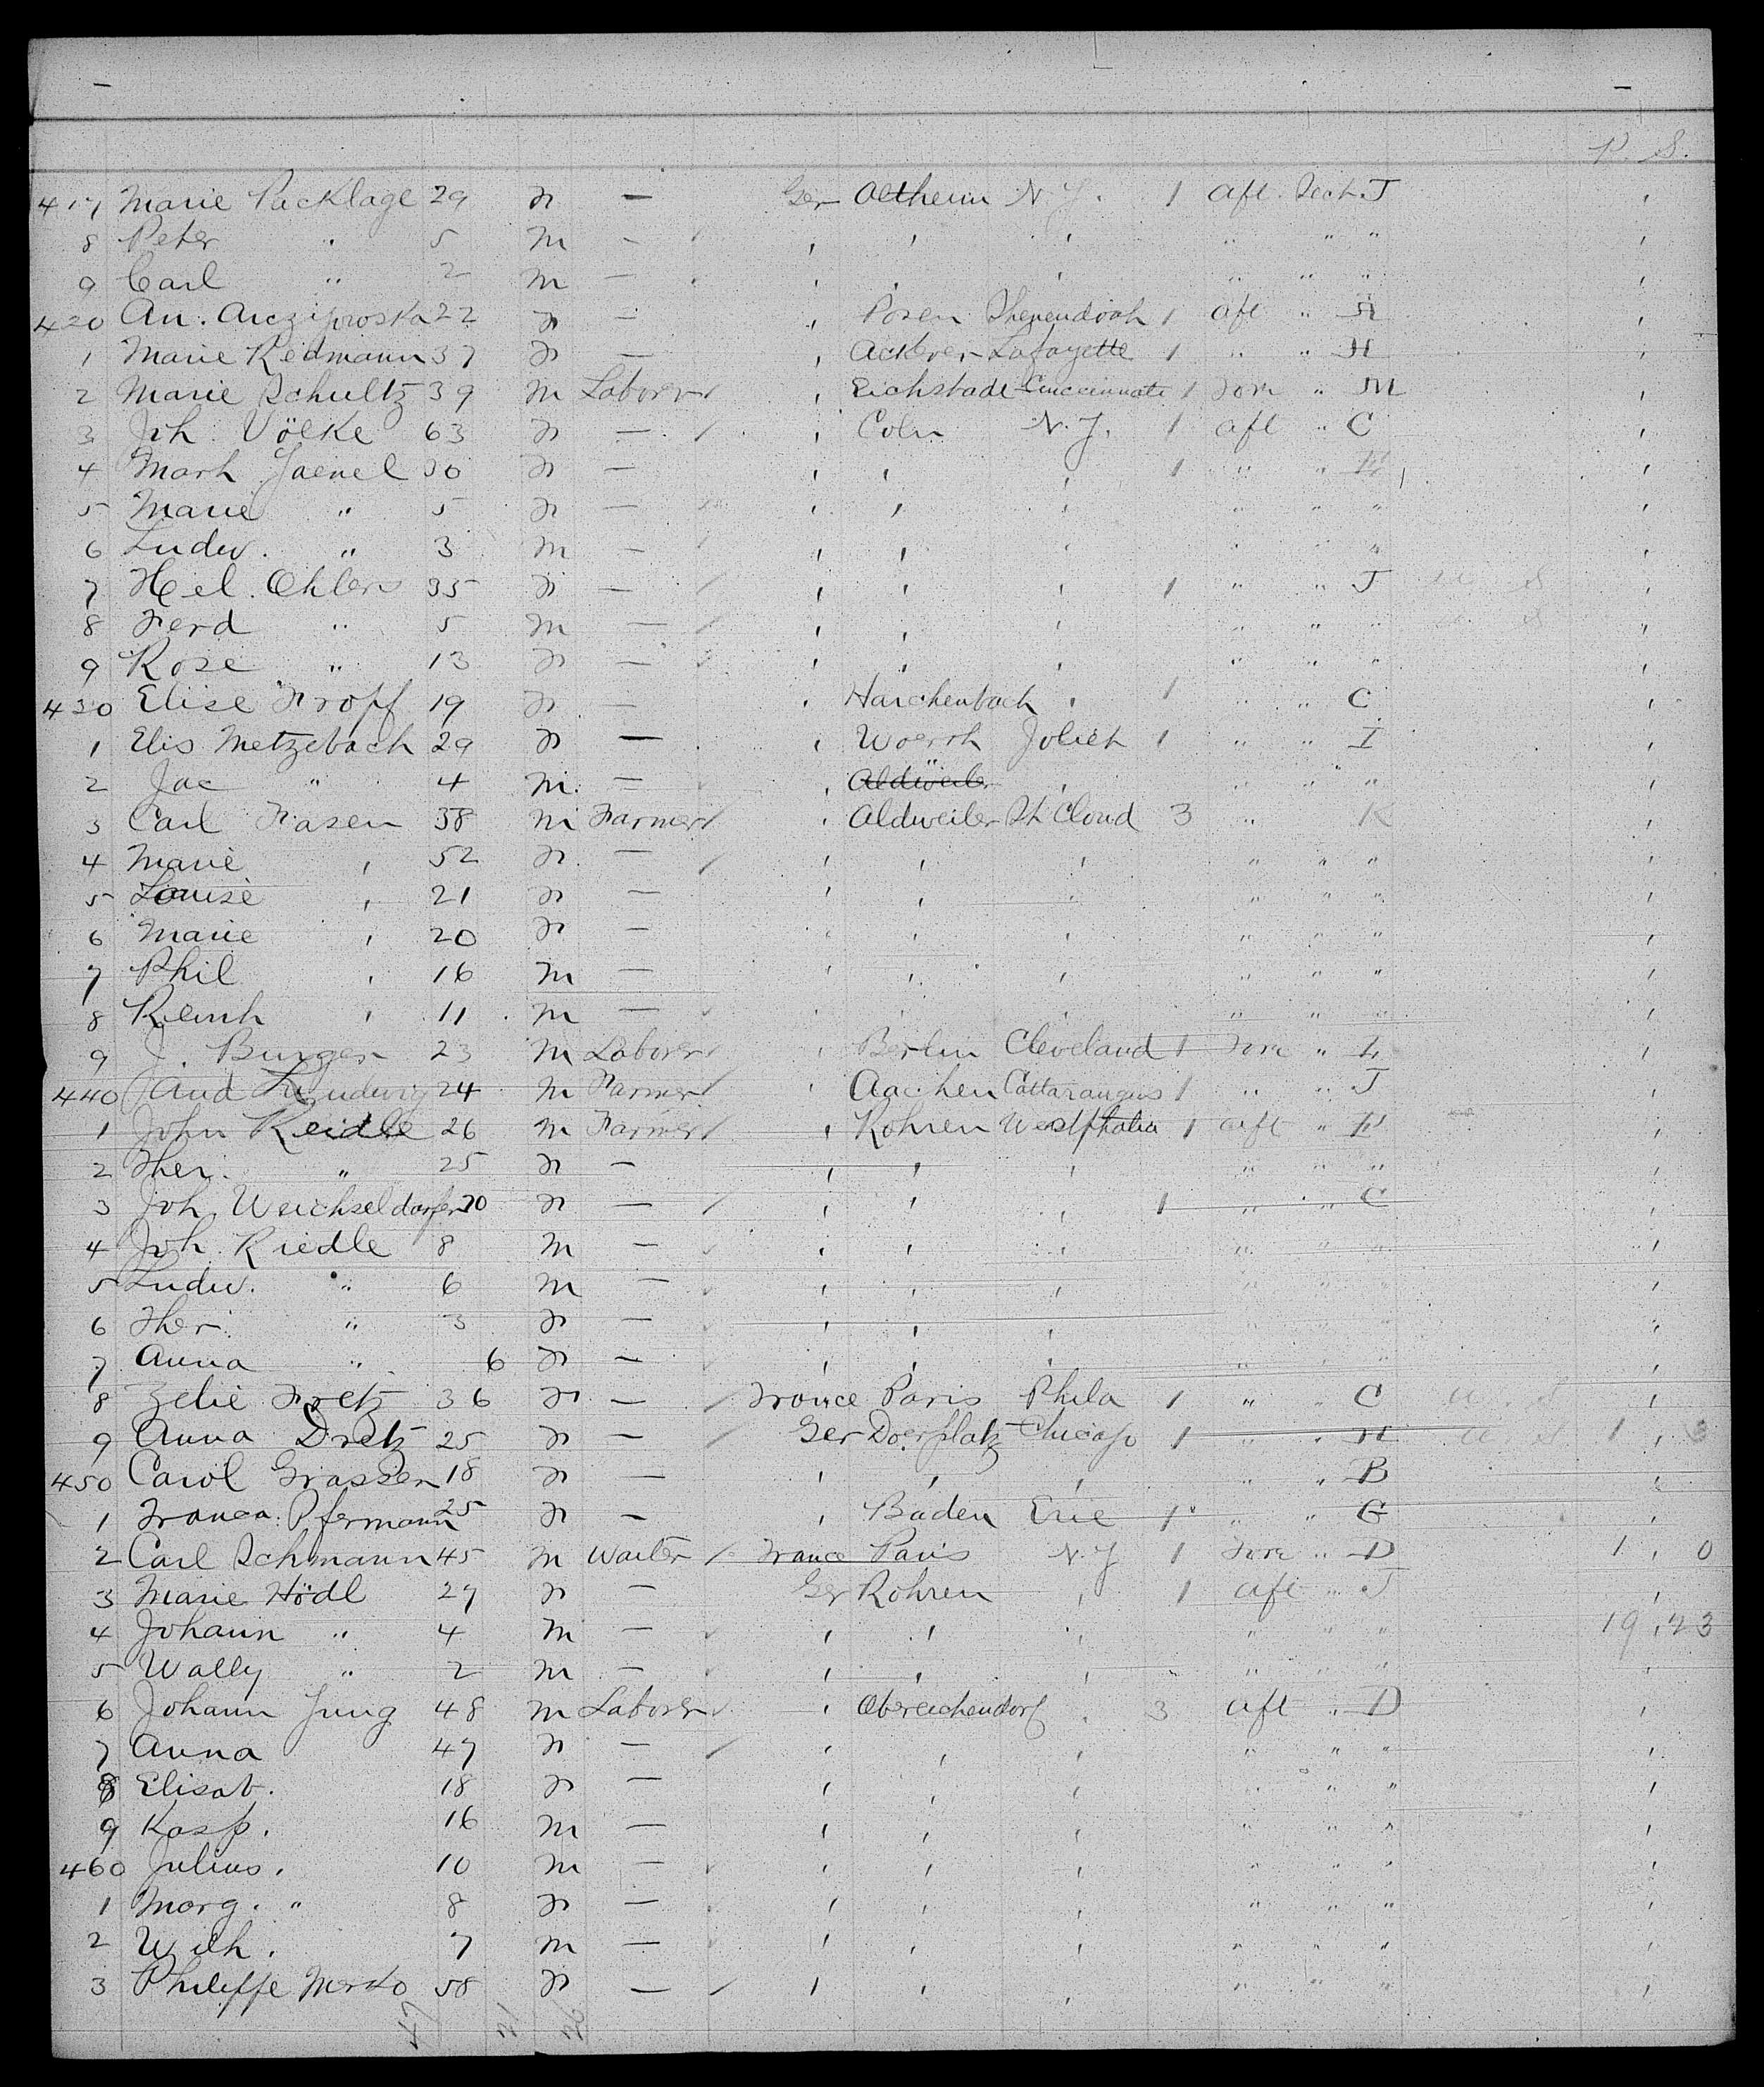 P. S.
417 Marie Packlage 29 F — Ger Altheim N.Y. 1 aft. Dect. J
8 Peter " 5 M —
9 Carl " 2 M —
420 An. 22 F — Posen Shenendoah 1 aft " H
1 Marie Redmann 37 F — Lafayette 1 " " H
2 Marie Schultz 39 M Laborer Eichstade Cincinnati 1 Fore " M
3 Joh. Völke 63 F — Coln N.Y. 1 aft " C
4 Marh 30 F — 1 " "
5 Marie " 5 F — " " "
6 Ludw. " 3 M — " "
7 Hel. Ohlers 35 F — 1 " " J
8 Ferd " 5 M — " " "
9 Rose " 13 F — " " "
430 Elise Kropf 19 F — Harchenbach 1 " " C
1 Elis Metzebach 29 F — Woerth Joliet 1 " " I
2 Jac " 4 M — " " "
3 Carl Fasen 38 M Farmer Aldweiler St Cloud 3 " K
4 Marie 52 F — " " "
5 Louise 21 F — " " "
6 Marie 20 F — " " "
7 Phil 16 M — " " "
8 Reinh 11 M — " " "
9 J. Burger 23 M Laborer Berlin Cleveland 1 Fore " L
440 And Ludwig 24 M Farmer Aachen Cattaraugus 1 " " J
1 John Reidle 26 M Farmer Rohren Westphalia 1 aft " F
2 Ther. " 25 F — " " "
3 Joh. Weichseldorfer 70 F — 1 " " C
4 Joh. Riedle 8 M — " " "
5 Ludw. " 6 M — " " "
6 Ther. " 3 F — " " "
7 Anna " 6 F — " " "
8 Zelie Fretz 36 F — France Paris Phila 1 " " C
9 Anna Dretz 25 F — Ger Doerplatz Chicago 1 " " H 1
450 Carol Grasser 18 F — " " B
1 Franca. Pfermann 25 F — Baden Erie 1 " " G
2 Carl Schmann 45 M Waiter France Paris N.Y 1 Fore " D 1 0
3 Marie Hödl 27 F — Ger Rohren 1 aft " J
4 Johann " 4 M — " " " 19 23
5 Wally " 2 M — " " "
6 Johann Jung 48 M Laborer Obereichendorf 3 aft " D
7 Anna 47 F — " " "
8 Elisab. 18 F — " "
9 Kasp. 16 M — " " "
460 Julius. 10 M — " " "
1 Marg. " 8 F — " " "
2 Wilh. 7 M — " " "
3 Philippe 58 F — " " "